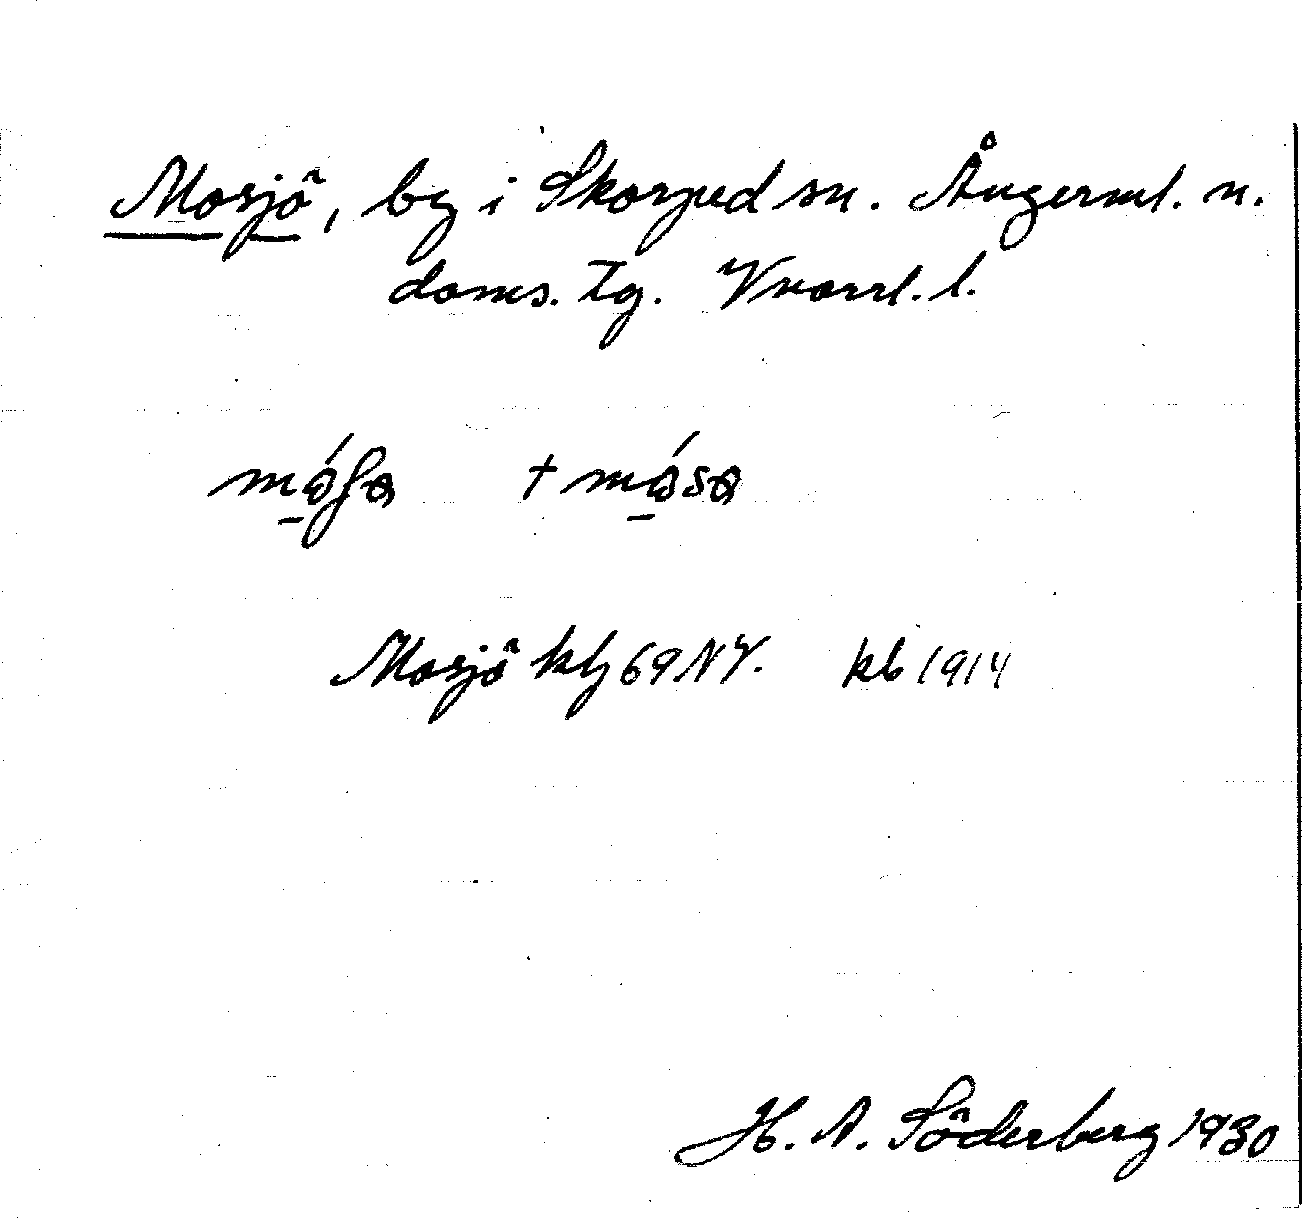 Mosjö, by i Skorped sn. Ångerml. n.
doms. tg. Vnorrl. l.
+
Mosjö klg 69 NV. kb 1914
H. A. Söderberg 1930